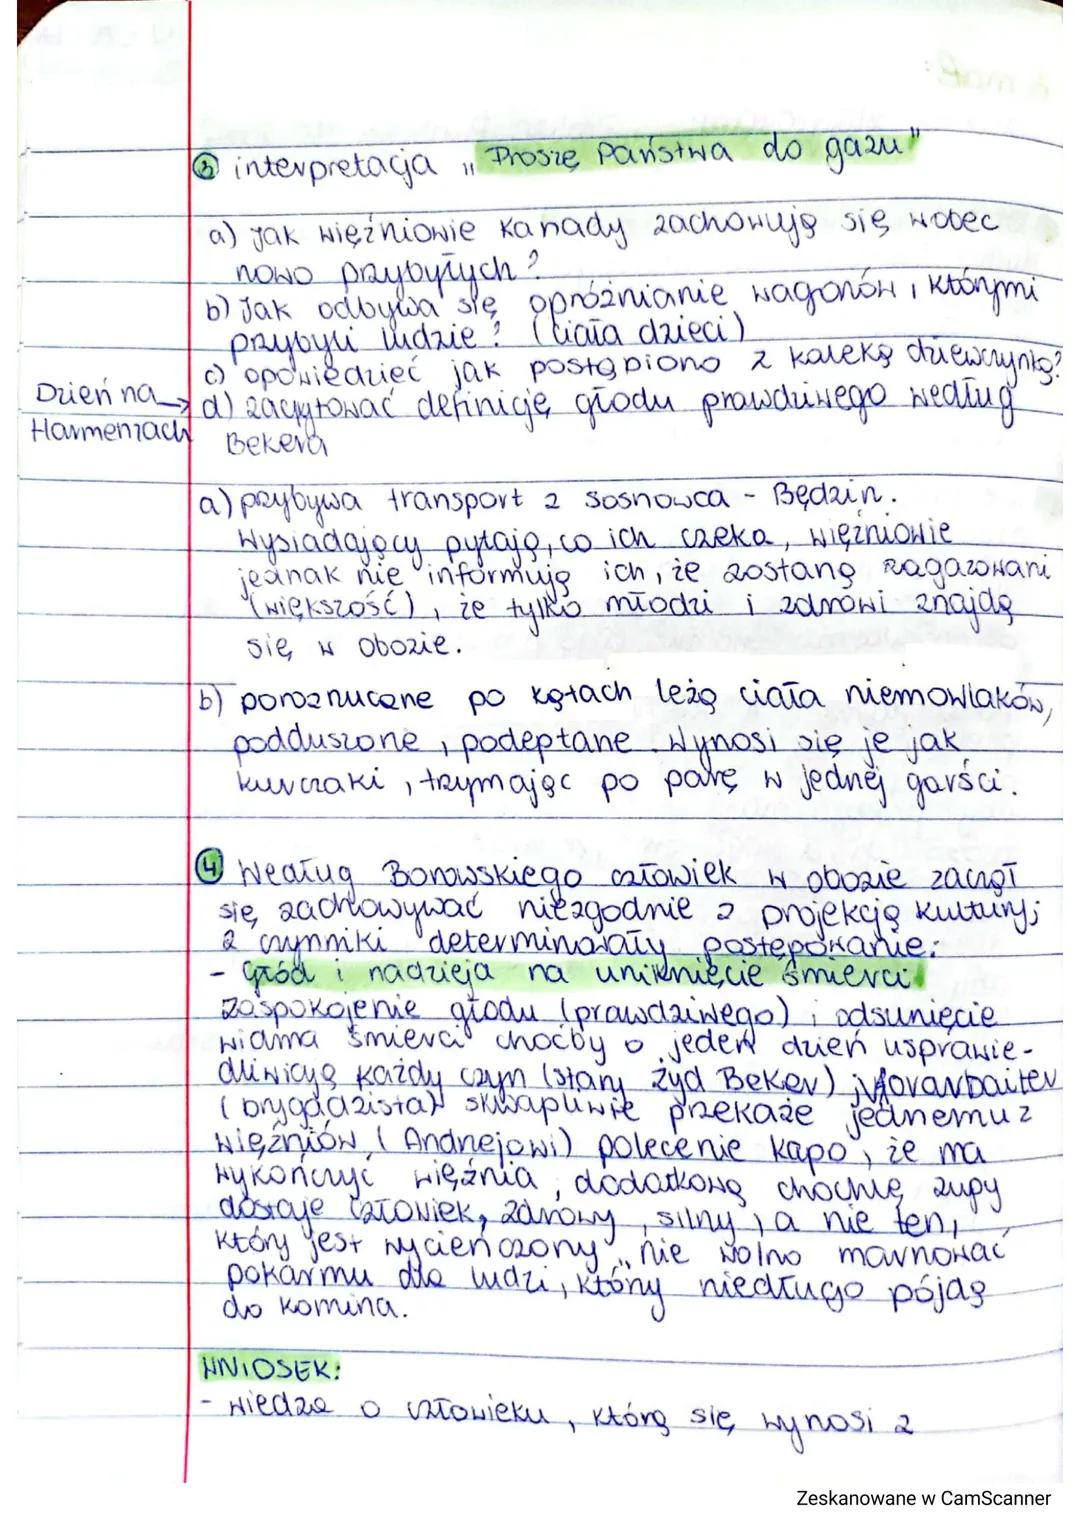 ③ interpretacja „Proszę Państwa do gazu"
a) jak więźniowie Kanady zachowują się wobec
nowo przybyłych?
b) Jak odbywa się opróżnianie wagonów, którymi
przybyli ludzie? (ciała dzieci)
c) opowiedzieć jak postąpiono z kaleką dziewczynką?
Dzień na Harmenzach → d) zacytować definicję głodu prawdziwego według
Bekera
a) przybywa transport z Sosnowca - Będzin.
Wysiadający pytają, co ich czeka, więźniowie
jednak nie informują ich, że zostaną zagazowani
(większość), że tylko młodzi i zdrowi znajdą
się w obozie.
b) porozrzucane po kątach leżą ciała niemowlaków,
podduszone, podeptane. Wynosi się je jak
kurczaki, trzymając po parę w jednej garści.
④ Według Borowskiego człowiek w obozie zaczął
się zachowywać niezgodnie z projekcją kultury;
2 czynniki determinowały postępowanie:
- Głód i nadzieja na uniknięcie śmierci
zaspokojenie głodu (prawdziwego) i odsunięcie
widma śmierci choćby o jeden dzień usprawie-
dliwiają każdy czyn (stary Żyd Beker) vorarbaiter
(brygadzista) skwapliwie przekaże jednemu z
więźniów (Andrzejowi) polecenie kapo, że ma
wykończyć więźnia, dodatkową chochlę zupy
dostaje człowiek, zdrowy, silny, a nie ten,
który jest wycieńczony „nie wolno marnować
pokarmu dla ludzi, który niedługo pójdą
do komina.
WNIOSEK:
- wiedza o człowieku, którą się wynosi z
Zeskanowane w CamScanner